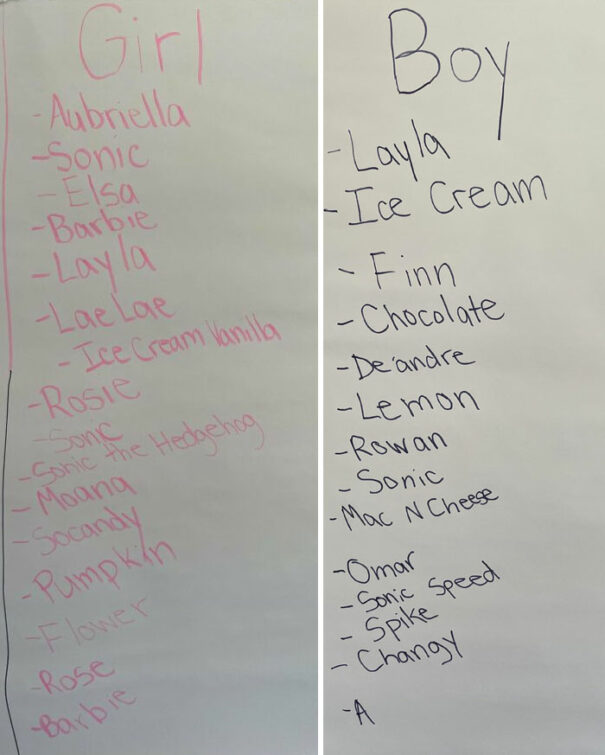 Girl
-Aubriella
-Sonic
-Elsa
-Barbie
-Layla
-LaeLae
-Ice Cream Vanilla
-Rosie
-Sonic
-Sonic the Hedgehog
-Moana
-Socandy
-Pumpkin
-Flower
-Rose
-Barbie
Boy
-Layla
-Ice Cream
-Finn
-Chocolate
-De'andre
-Lemon
-Rowan
-Sonic
-Mac N Cheese
-Omar
-Sonic Speed
-Spike
-Changy
-A